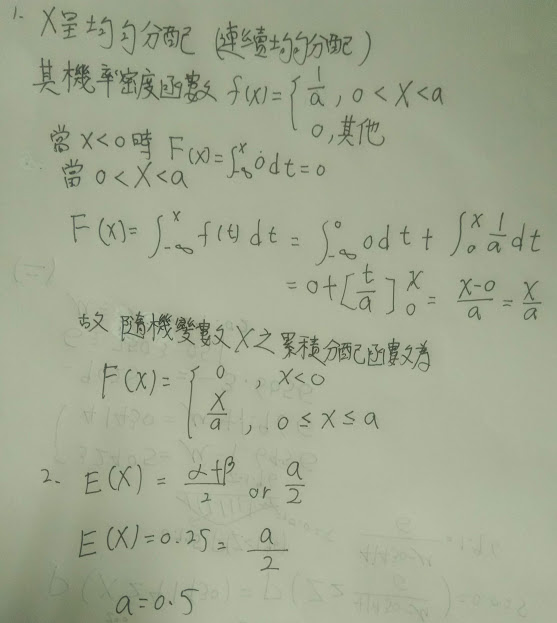 1. X呈均勻分配 (連續均勻分配)
其機率密度函數 f(x)={ 1/a , 0<X<a
0, 其他
當 x<0 時 F(x)=∫_{-∞}^{x} 0 dt=0
當 0<X<a
F(x)=∫_{-∞}^{x} f(t) dt = ∫_{-∞}^{0} 0 dt + ∫_{0}^{x} 1/a dt
= 0+[t/a]_{0}^{x} = (x-0)/a = x/a
故 隨機變數X之累積分配函數為
F(x)={ 0 , x<0
x/a , 0≤x≤a
2. E(X) = (α+β)/2 or a/2
E(X)=0.25= a/2
a=0.5